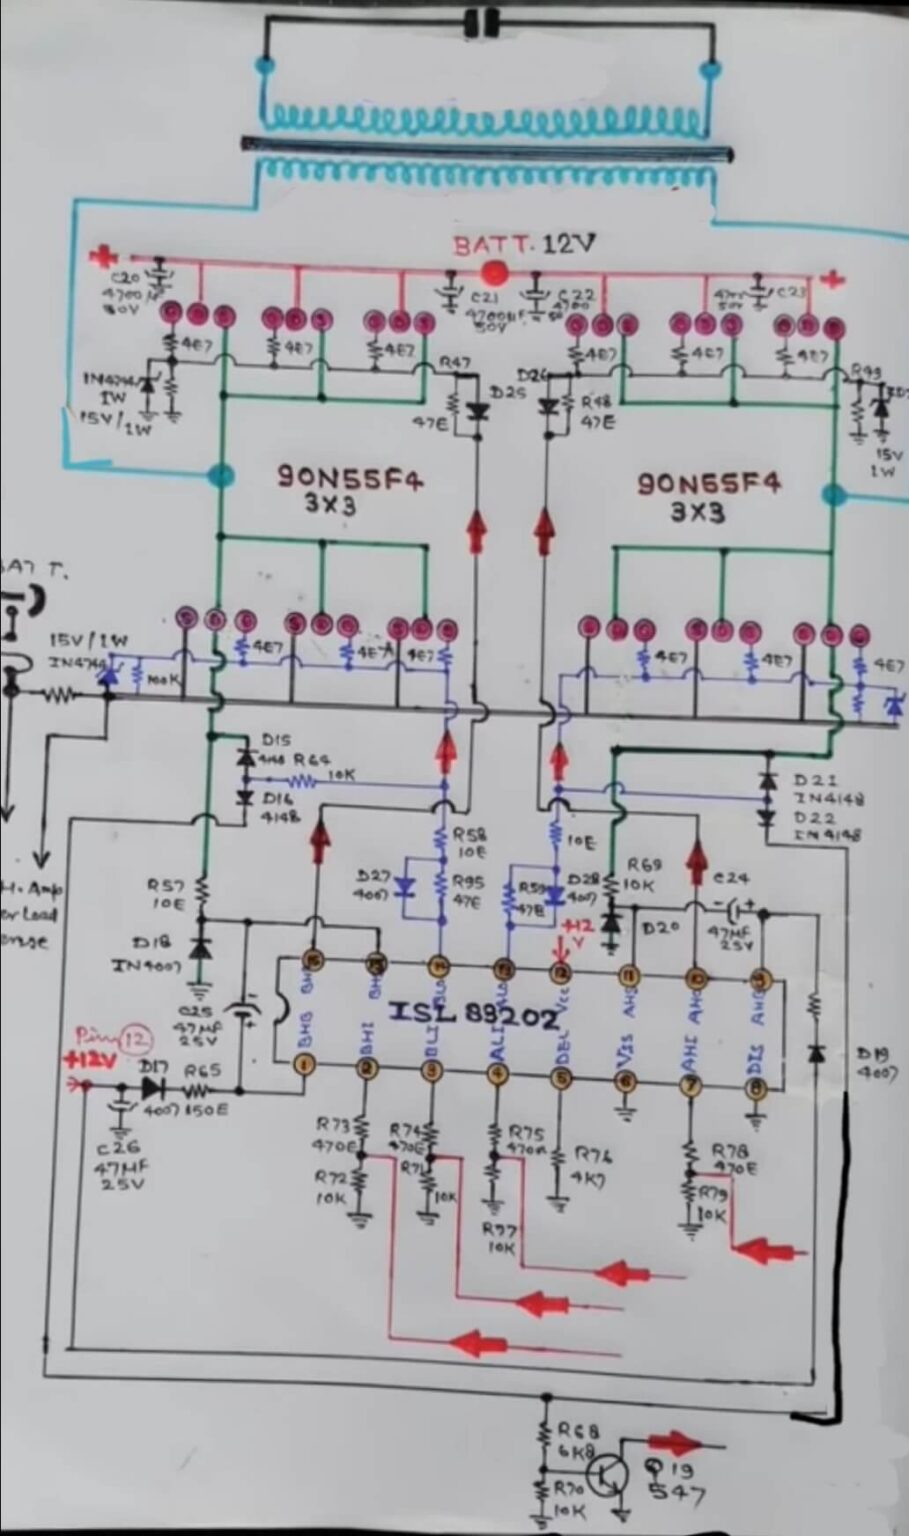 BATT. 12V
C20
4700µF
50V
C21
4700µF
50V
C22
4700
C23
4E7
4E7
4E7
4E7
4E7
4E7
R47
D25
47E
D26
R48
47E
R49
1W
15V/1W
15V
1W
90N55F4
3X3
90N55F4
3X3
BATT.
15V/1W
IN4744
100K
4E7
4E7
4E7
4E7
4E7
4E7
D15
4148
R64
10K
D16
4148
D21
IN4148
D22
IN4148
H. Amp
or Load
R58
10E
10E
D27
4007
R95
47E
R59
47E
D28
4007
R69
10K
C24
47MF
25V
D20
R57
10E
D18
IN4007
+12
V
C25
47MF
25V
ISL 83202
BHB
BHI
BLI
ALI
DEL
VSS
AHI
DIS
BLO
ALO
VCC
AHS
AHO
AHB
1
2
3
4
5
6
7
8
Pin 12
+12V
D17
4007
R65
150E
C26
47MF
25V
D19
4007
R73
470E
R72
10K
R74
470E
R71
10K
R75
470E
R77
10K
R76
4K7
R78
470E
R79
10K
R68
6K8
R70
10K
Q19
547